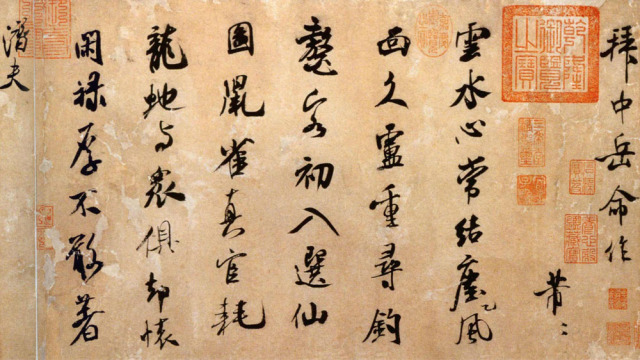 拜中岳命作
芾〻
雲水心常結塵風
面久盧重尋釣
鼇客初入選仙
圖鼠雀真官耗
龍蛇与衆俱却懷
閑祿厚不敢著
潛夫
乾隆御覽之寶